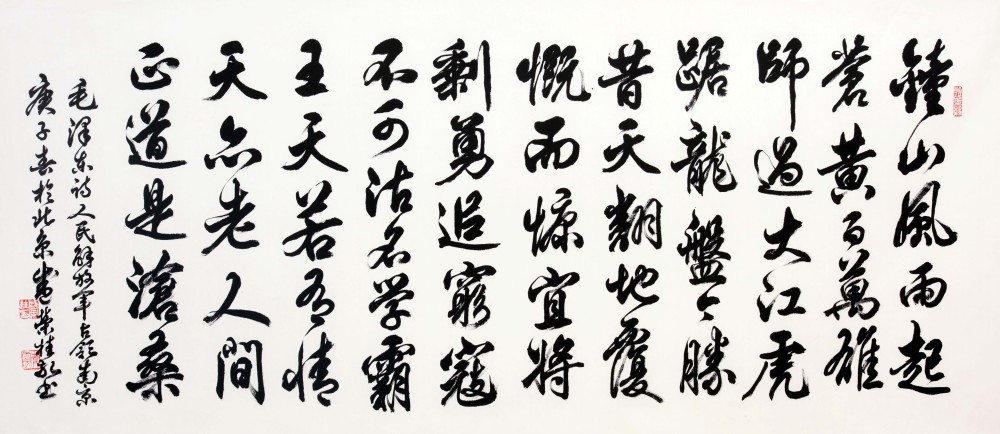 鐘山風雨起
蒼黃百萬雄
師過大江虎
踞龍盤今勝
昔天翻地覆
慨而慷宜將
剩勇追窮寇
不可沽名學霸
王天若有情
天亦老人間
正道是滄桑
毛澤东诗人民解放軍占領南京
庚子春於北京